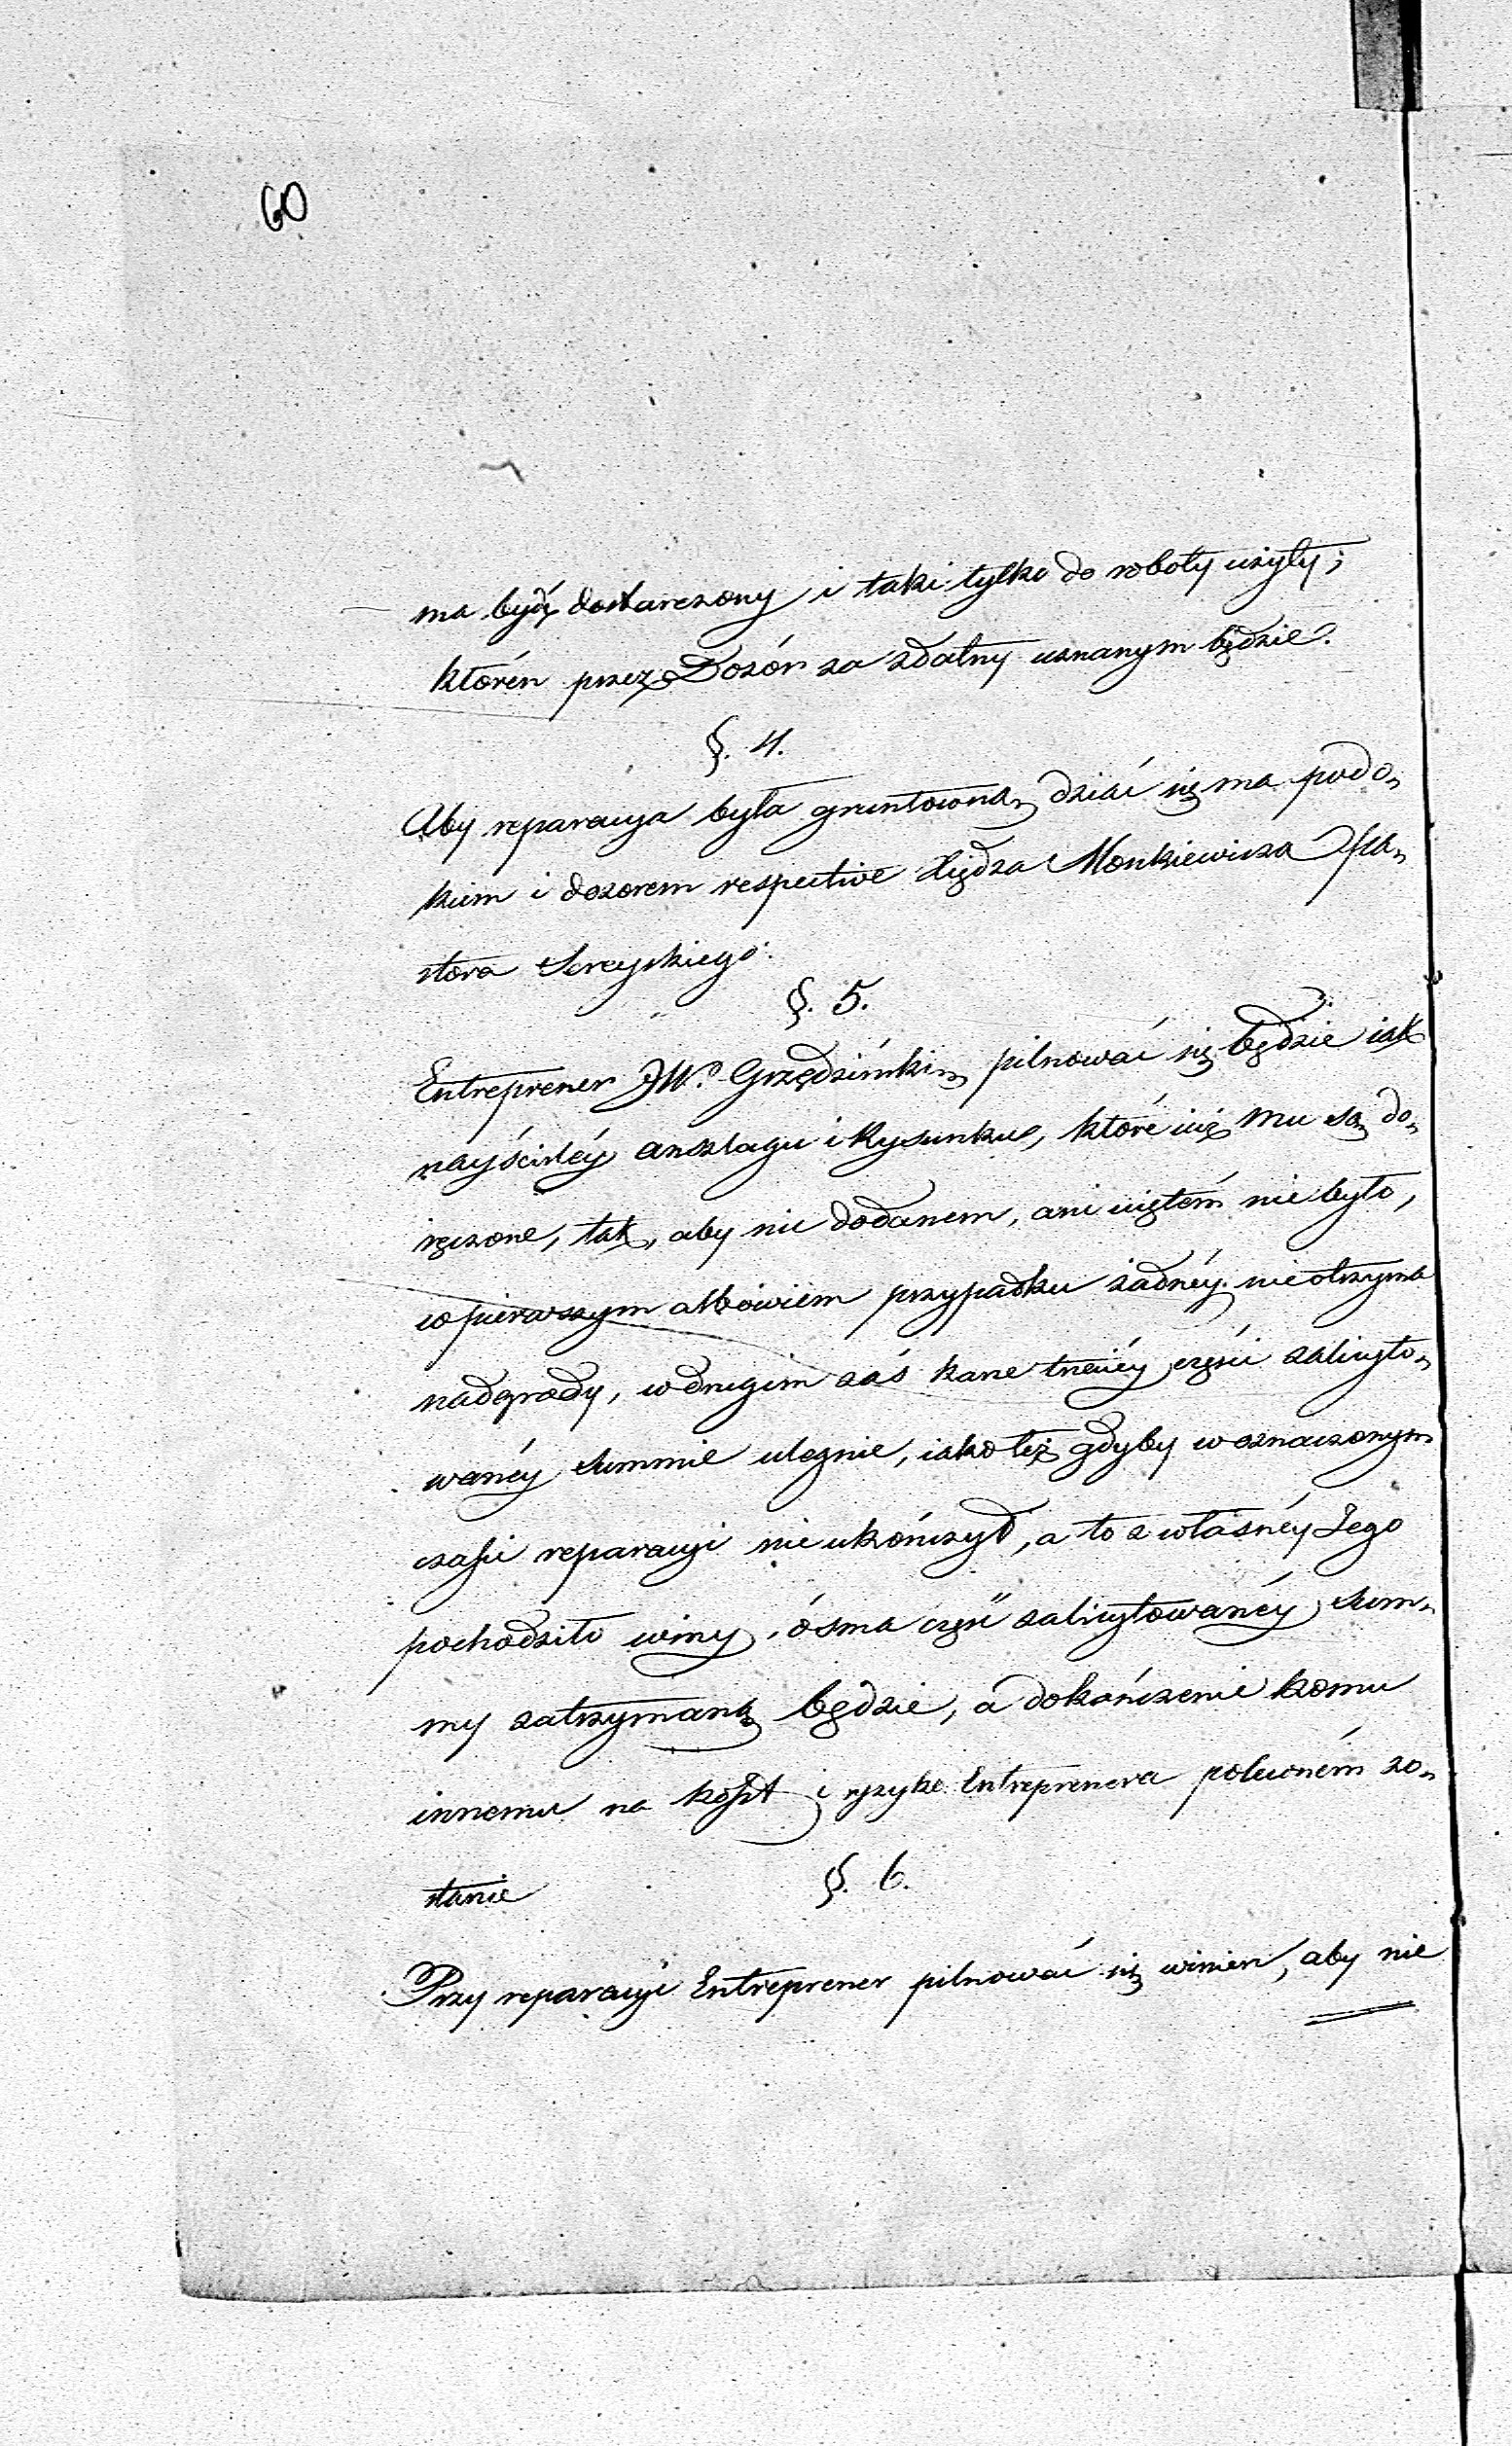 60
ma bydź dostarczony i taki tylko do roboty użyty,
któren przez Dozór za zdatny uznanym będzie.
§. 4.
Aby reparacya była gruntowną, dziać się ma pod o„
kiem i dozorem respective Xiędza Monkiewicza Pa„
stora Sereyskiego.
§. 5.
Entreprener JW. Grzędziński, pilnować się będzie iak
nayściśléy anszlagu i Rysunku, które iuż mu są do„
ręczone, tak, aby nic dodanem, ani uiętém nie było,
w pierwszym albowiem przypadku żadnéy nie otrzyma
nadgrody, w drugim zaś karze trzeciéy części zalicyto„
wanéy Summie ulegnie, iako też gdyby w oznaczonym
czasie reparacyi nie ukończył, a to z własnéy Jego
pochodziło winy, ósma część zalicytowanéy Sum„
my zatrzymaną będzie, a dokończenie komu
innemu na koszt i ryzyko Entreprenera poleconém zo„
stanie
§. 6.
Przy reparacyi Entreprener pilnować się winien, aby nie